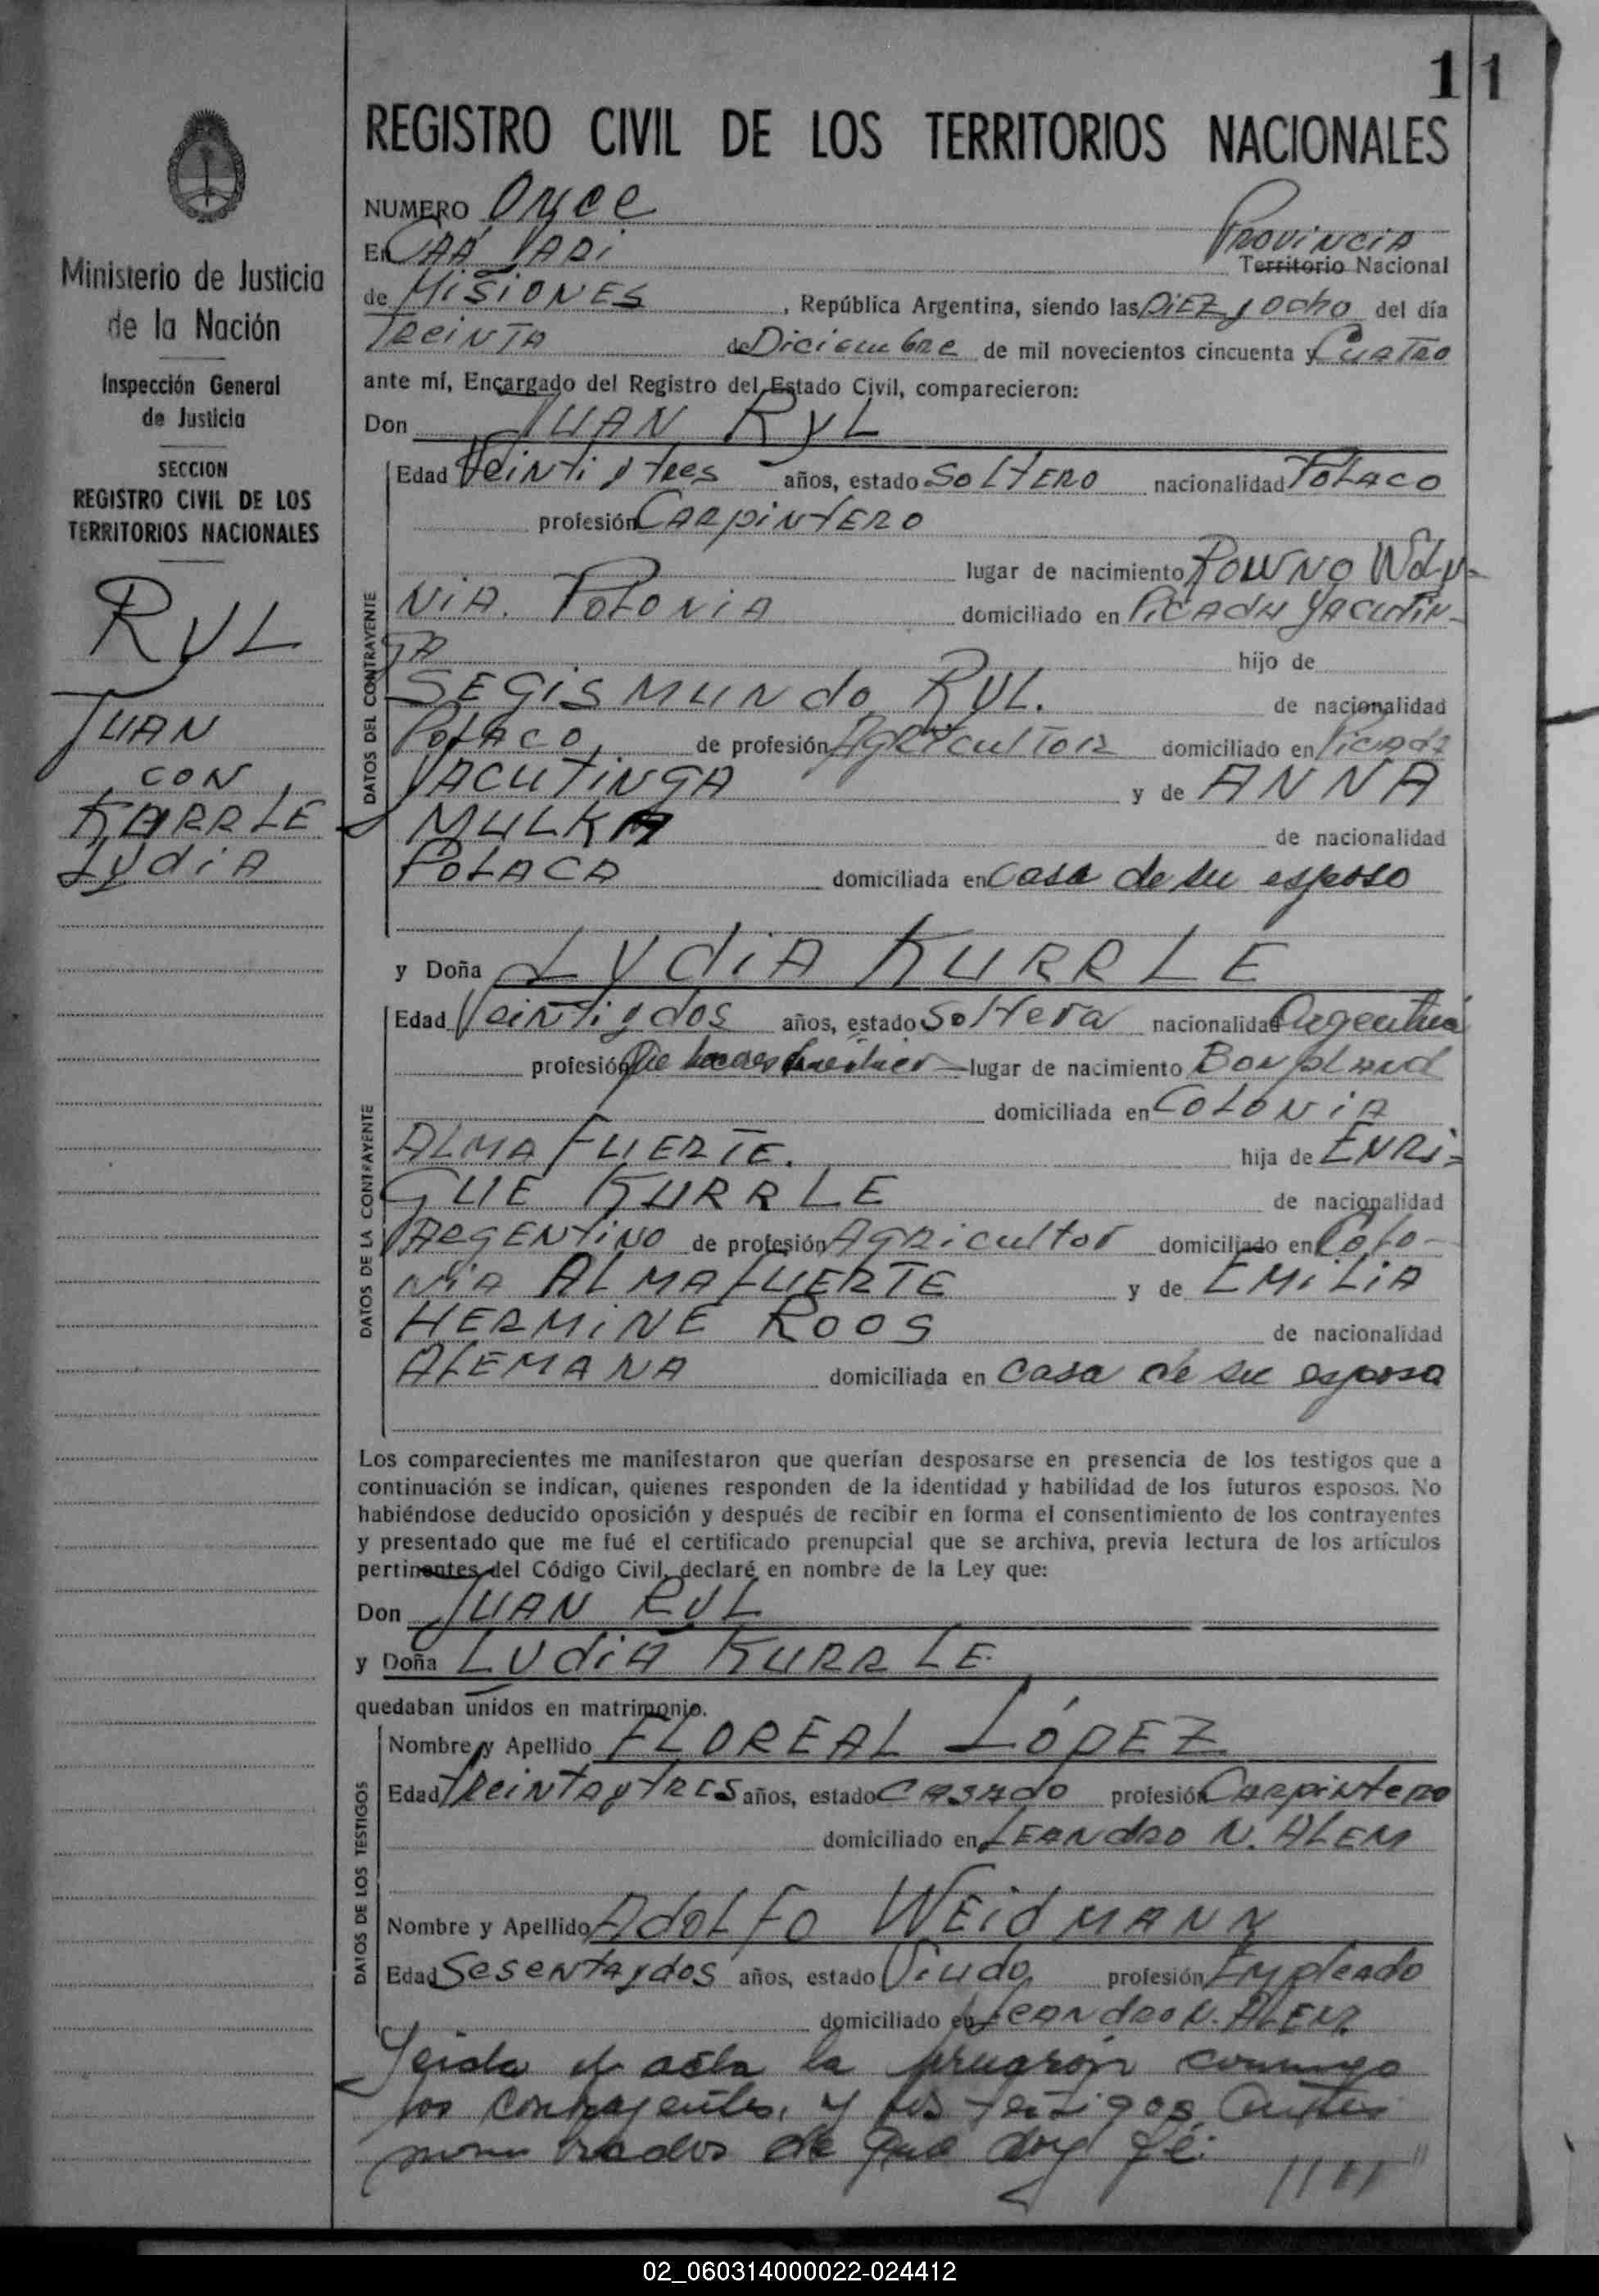 11
REGISTRO CIVIL DE LOS TERRITORIOS NACIONALES
Ministerio de Justicia
de la Nación
Inspección General
de Justicia
SECCION
REGISTRO CIVIL DE LOS
TERRITORIOS NACIONALES
RYL
JUAN
CON
KARRLE
Lydia
NUMERO Once
En CAA YARI PROVINCIA
Territorio Nacional
de MISIONES, República Argentina, siendo las DIEZ y ocho del día
TREINTA de Diciembre de mil novecientos cincuenta y CUATRO
ante mí, Encargado del Registro del Estado Civil, comparecieron:
Don JUAN RYL
DATOS DEL CONTRAYENTE
Edad Veinti y tres años, estado SOLTERO nacionalidad POLACO
profesión CARPINTERO
lugar de nacimiento ROWNO Woly-
NIA. POLONIA domiciliado en PICADA YACUTIN-
GA hijo de
SEGISMUNDO RYL. de nacionalidad
POLACO, de profesión AGRICULTOR domiciliado en Picada
YACUTINGA y de ANNA
MULKA de nacionalidad
POLACA domiciliada en casa de su esposo
y Doña LYdiA KURRLE
DATOS DE LA CONTRAYENTE
Edad Veinti y dos años, estado Soltera nacionalidad Argentina
profesión lugar de nacimiento Bonpland
domiciliada en COLONIA
ALMAFUERTE. hija de ENRI=
QUE KURRLE de nacionalidad
ARGENTINO de profesión Agricultor domiciliado en Colo-
nia ALMAFUERTE y de EMILIA
HERMINE ROOS de nacionalidad
ALEMANA domiciliada en casa de su esposo
Los comparecientes me manifestaron que querían desposarse en presencia de los testigos que a
continuación se indican, quienes responden de la identidad y habilidad de los futuros esposos. No
habiéndose deducido oposición y después de recibir en forma el consentimiento de los contrayentes
y presentado que me fué el certificado prenupcial que se archiva, previa lectura de los artículos
pertinentes del Código Civil, declaré en nombre de la Ley que:
Don JUAN RYL
y Doña LYdiA KURRLE.
quedaban unidos en matrimonio.
DATOS DE LOS TESTIGOS
Nombre y Apellido FLOREAL LÓPEZ
Edad treinta y tres años, estado casado profesión Carpintero
domiciliado en LEANDRO N. ALEM
Nombre y Apellido Adolfo WEIDMANN
Edad Sesenta y dos años, estado Viudo, profesión Empleado
domiciliado en LEANDRO N. ALEM.
Leida el acta la firmaron conmigo
los contrayentes, y los testigos antes
nombrados de que doy fé.
02_060314000022-024412